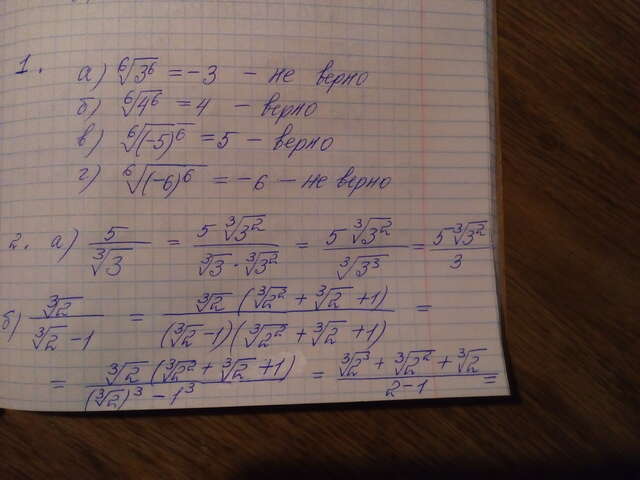 1. а) ⁶√3⁶ = -3 - не верно
б) ⁶√4⁶ = 4 - верно
в) ⁶√(-5)⁶ = 5 - верно
г) ⁶√(-6)⁶ = -6 - не верно
2. а) 5/∛3 = 5∛3²/(∛3 · ∛3²) = 5∛3²/∛3³ = 5∛3²/3
б) ∛2/(∛2 - 1) = ∛2(∛2² + ∛2 + 1)/((∛2 - 1)(∛2² + ∛2 + 1)) =
= ∛2(∛2² + ∛2 + 1)/((∛2)³ - 1³) = (∛2³ + ∛2² + ∛2)/(2 - 1) =